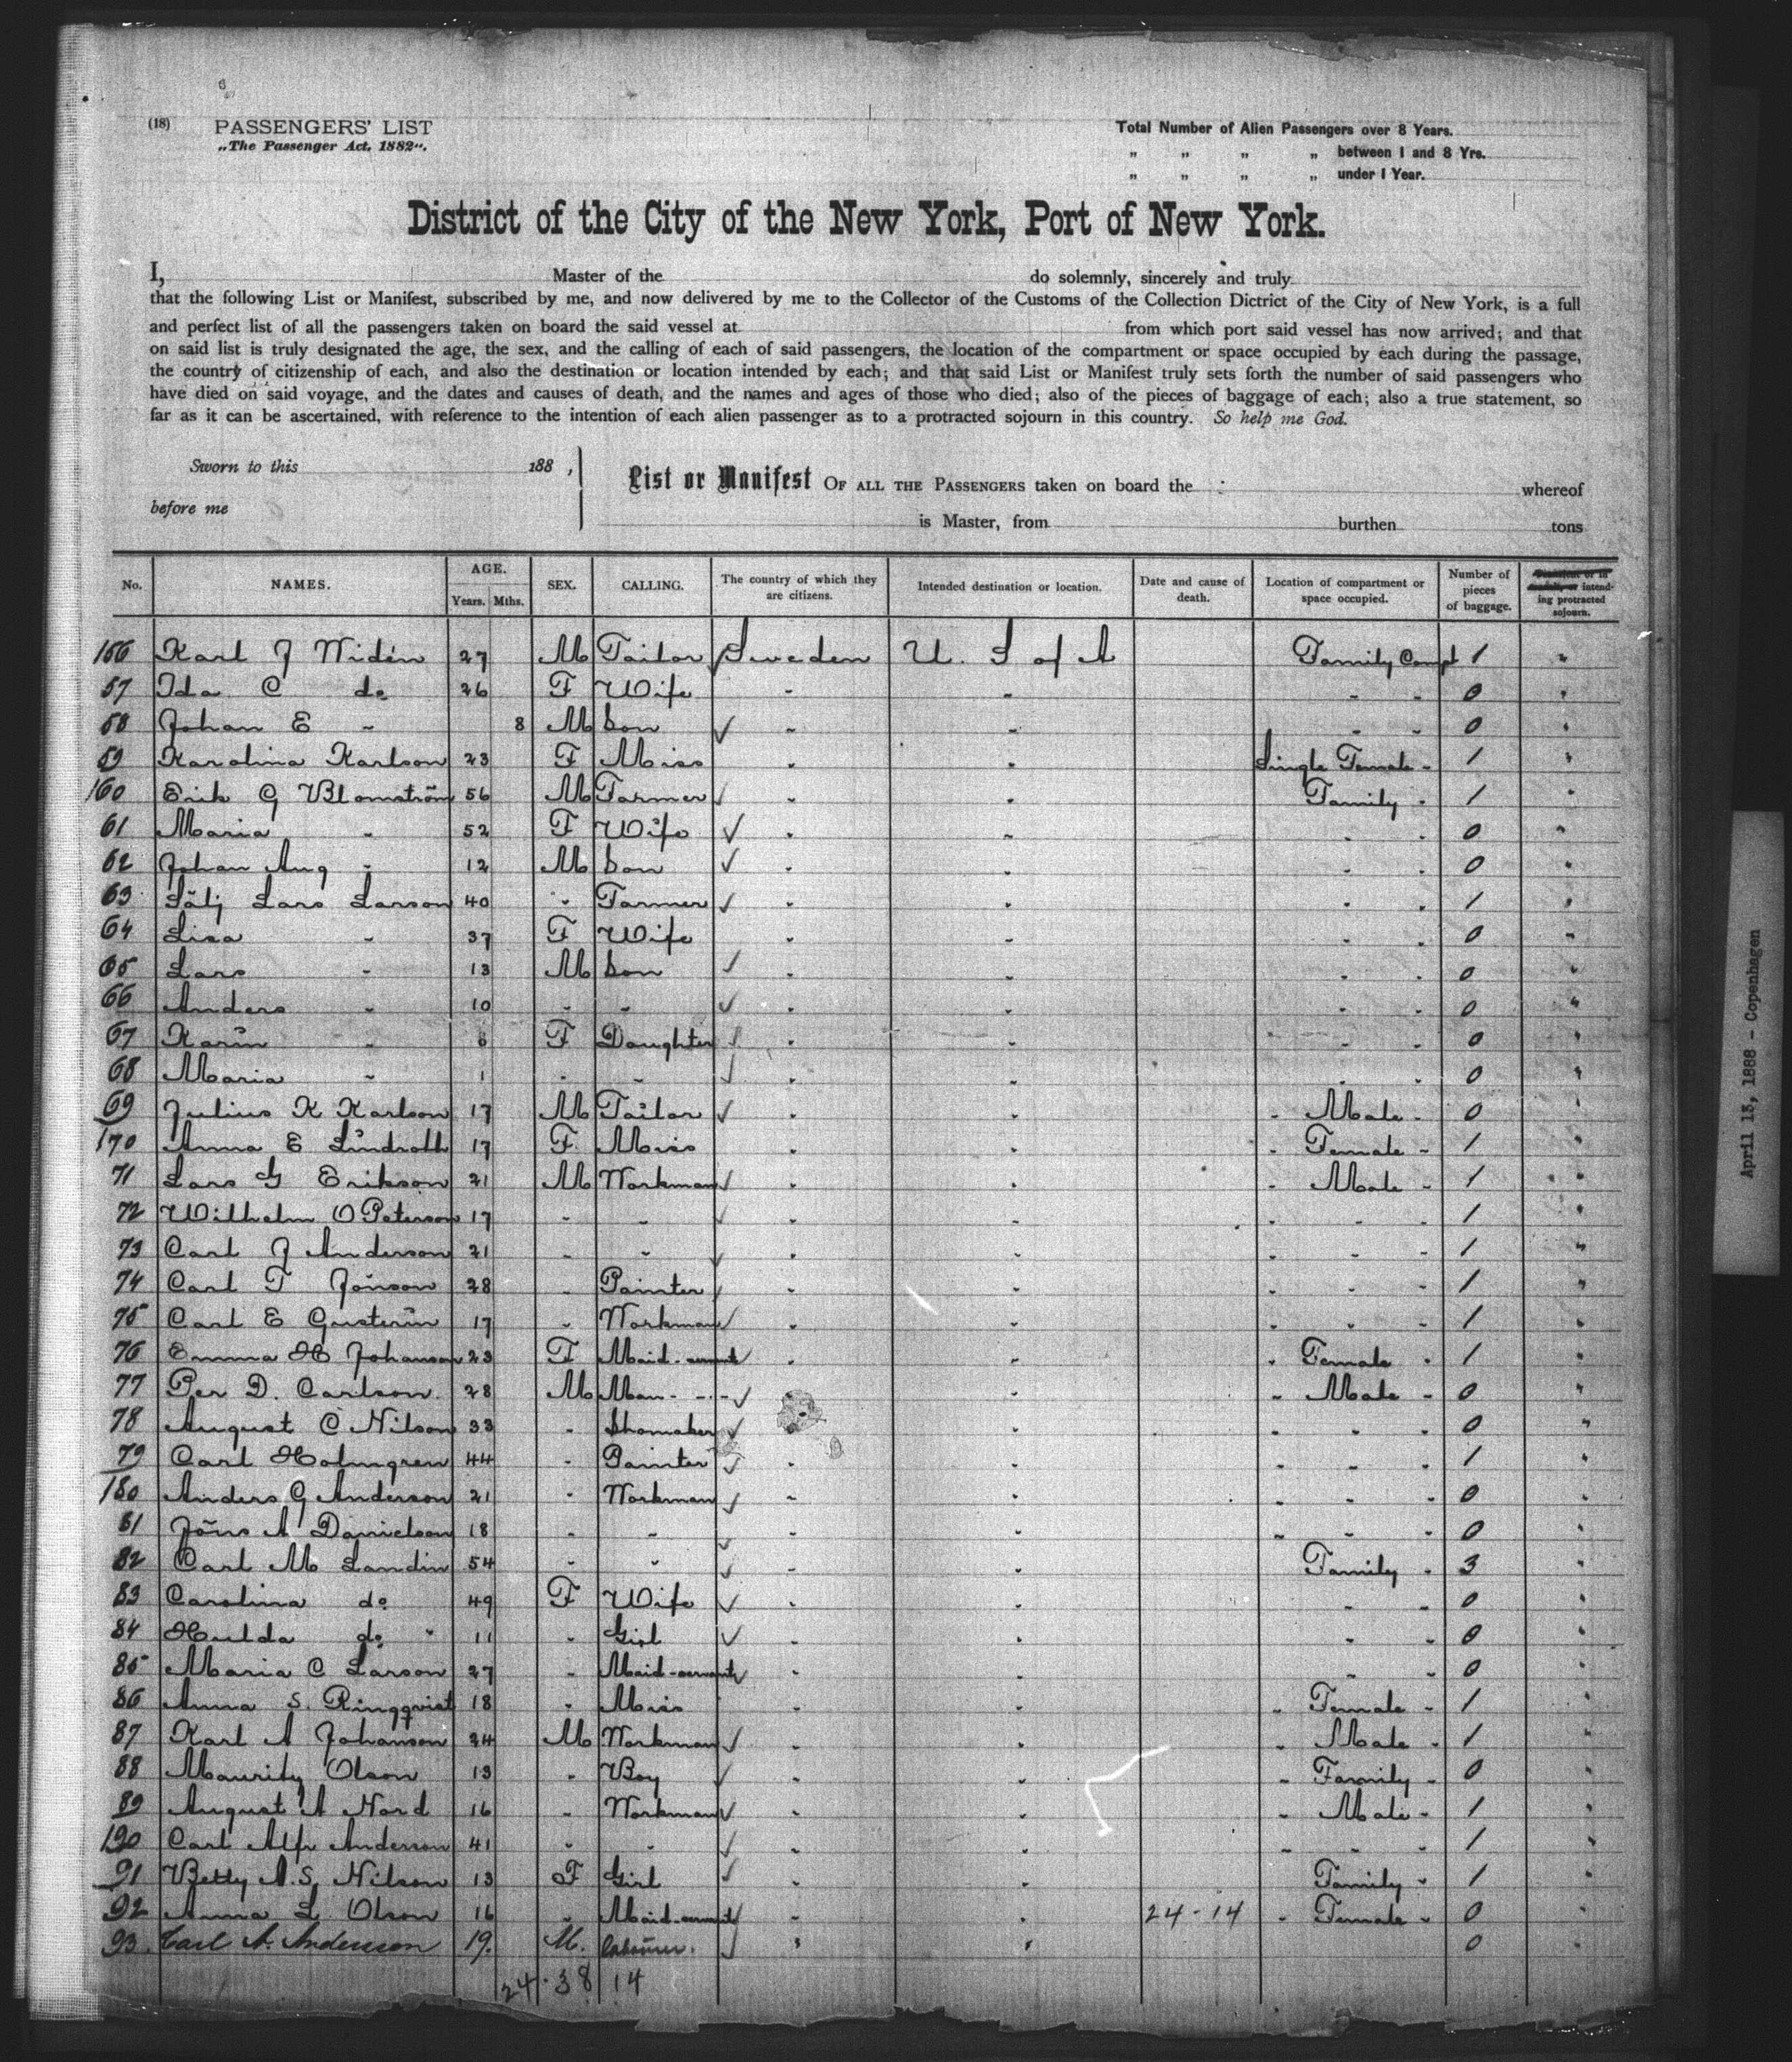 (18) PASSENGERS' LIST
„The Passenger Act, 1882“.
Total Number of Alien Passengers over 8 Years.
„ „ „ „ between 1 and 8 Yrs.
„ „ „ „ under 1 Year.
District of the City of the New York, Port of New York.
I, Master of the do solemnly, sincerely and truly
that the following List or Manifest, subscribed by me, and now delivered by me to the Collector of the Customs of the Collection District of the City of New York, is a full
and perfect list of all the passengers taken on board the said vessel at from which port said vessel has now arrived; and that
on said list is truly designated the age, the sex, and the calling of each of said passengers, the location of the compartment or space occupied by each during the passage,
the country of citizenship of each, and also the destination or location intended by each; and that said List or Manifest truly sets forth the number of said passengers who
have died on said voyage, and the dates and causes of death, and the names and ages of those who died; also of the pieces of baggage of each; also a true statement, so
far as it can be ascertained, with reference to the intention of each alien passenger as to a protracted sojourn in this country. So help me God.
Sworn to this 188 ,
before me
List or Manifest OF ALL THE PASSENGERS taken on board the whereof
is Master, from burthen tons
No. NAMES. AGE. Years. Mths. SEX. CALLING. The country of which they are citizens. Intended destination or location. Date and cause of death. Location of compartment or space occupied. Number of pieces of baggage. intending protracted sojourn.
156 Karl J Widén 27 M Tailor Sweden U. S of A Family Compt 1 "
57 Ida C do 26 F Wife " " " " 0 "
58 Johan E " 8 M Son " " " " 0 "
59 Karolina Karlson 23 F Miss " " Single Female " 1 "
160 Erik G Blomström 56 M Farmer " " Family " 1 "
61 Maria " 52 F Wife " " " " 0 "
62 Johan Aug " 12 M Son " " " " 0 "
63 Sälj Lars Larson 40 " Farmer " " " " 1 "
64 Lisa " 37 F Wife " " " " 0 "
65 Lars " 13 M Son " " " " 0 "
66 Anders " 10 " " " " " " 0 "
67 Karin " F Daughter " " " " 0 "
68 Maria " 1 " " " " " " 0 "
69 Julius K Karlson 17 M Tailor " " " Male " 0 "
170 Anna E Lindroth 17 F Miss " " " Female " 1 "
71 Lars G Erikson 21 M Workman " " " Male " 1 "
72 Wilhelm O Peterson 17 " " " " " " " 1 "
73 Carl J Anderson 21 " " " " " " " 1 "
74 Carl T Jönson 28 " Painter " " " " " 1 "
75 Carl E Gusterin 17 " Workman " " " " " 1 "
76 Emma H Johanson 23 F Maid-servant " " " Female " 1 "
77 Per D. Carlson 28 M Man- " " " " Male " 0 "
78 August C Nilson 33 " Shomaker " " " " " 0 "
79 Carl Holmgren 44 " Painter " " " " " 1 "
180 Anders G Anderson 21 " Workman " " " " " 0 "
81 Jöns A Danielson 18 " " " " " " " 0 "
82 Carl M Landin 54 " " " " Family " 3 "
83 Carolina do 49 F Wife " " " " 0 "
84 Hulda do " 11 " Girl " " " 0 "
85 Maria C Larson 27 " Maid-servant " " " " 0 "
86 Anna S. Ringqvist 18 " Miss " " " Female " 1 "
87 Karl A Johanson 24 M Workman " " " Male " 1 "
88 Mauritz Olson 13 " Boy " " " Family " 0 "
89 August A Nord 16 " Workman " " " Male " 1 "
190 Carl Alfr Anderson 41 " " " " " " " 1 "
91 Betty A.S. Nilson 13 F Girl " " Family " 1 "
92 Anna L Olson 16 " Maid-servant " " 24-14 " Female " 0 "
93 Carl A. Anderson 19. M. Labourer. " " 0 "
24 · 38 14
April 13, 1888 - Copenhagen